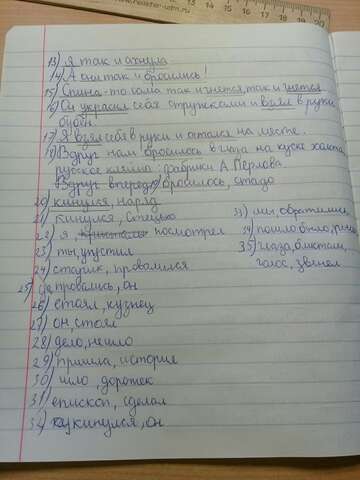 www.master-udm.ru
13) Я так и ахнула
14) А сам так и бросились!
15) Спина-то сама так и гнется, так и гнется
16) Он украсил себя стружками и взял в руки
бубен.
17) Я взял себя в руки и остался на месте.
18) Вдруг нам бросилось в глаза на куске
русское клеймо: фабрики А. Перлова.
Вдруг впереди бросилось, стадо
20) кинулся, наряд
21) кинулся,
22) я, посмотрел
23) ты, упустил
24) старик, провалился
25) провались, он
26) стоял, кузнец
27) он, стоял
28) дело, пошло
29) пришла, история
30) шло, дорожек
31) епископ, сделал
32) кинулся, он
33) мы, обратились
34) пошло было,
35) глаза, блистали,
голос, звенел